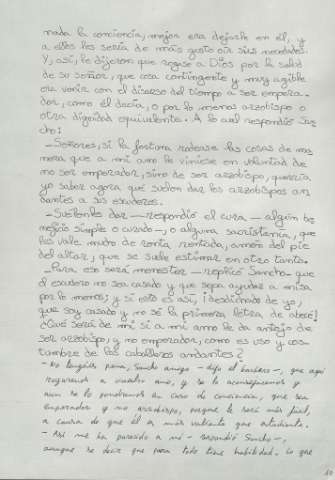 nada la conciencia, mejor era dejarle en él, y
a ellos les sería de más gusto oír sus necedades.
Y, así, le dijeron que rogase a Dios por la salud
de su señor, que cosa contingente y muy agible
era venir con el discurso del tiempo a ser empera-
dor, como él decía, o por lo menos arzobispo o
otra dignidad equivalente. A lo cual respondió San-
cho:
-Señores, si la fortuna rodease las cosas de ma-
nera que a mi amo le viniese en voluntad de
no ser emperador, sino de ser arzobispo, querría
yo saber agora qué suelen dar los arzobispos an-
dantes a sus escuderos.
-Suélenles dar —respondió el cura— algún be-
neficio simple o curado—, o alguna sacristanía, que
les vale mucho de renta rentada, amén del pie
del altar, que se suele estimar en otro tanto.
-Para eso será menester —replicó Sancho— que
el escudero no sea casado y que sepa ayudar a misa
por lo menos; y si esto es así, ¡desdichado de yo,
que soy casado y no sé la primera letra de abecé!
¿Qué será de mí si a mi amo le da antojo de
ser arzobispo, y no emperador, como es uso y cos-
tumbre de los caballeros andantes?
- No tengáis pena, Sancho amigo - dijo el barbero -, que aquí
rogaremos a vuestro amo, y se lo aconsejaremos y
aun se lo pondremos en caso de conciencia, que sea
emperador y no arzobispo, porque le será más fácil,
a causa de que él es más valiente que estudiante.
- Así me ha parecido a mí - respondió Sancho -,
aunque sé decir que para todo tiene habilidad. Lo que